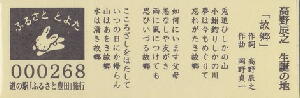 高野辰之 生誕の地
「故郷」
作詞 高野辰之
作曲 岡野貞一
兎追ひしかの山
小鮒釣りしかの川
夢は今もめぐりて
忘れがたき故郷
如何にいます父母
恙なしや友がき
雨に風につけても
思ひいづる故郷
こころざしをはたして
いつの日にか帰らん
山はあをき故郷
水は清き故郷
ふるさと とよた
000268
道の駅「ふるさと豊田」発行